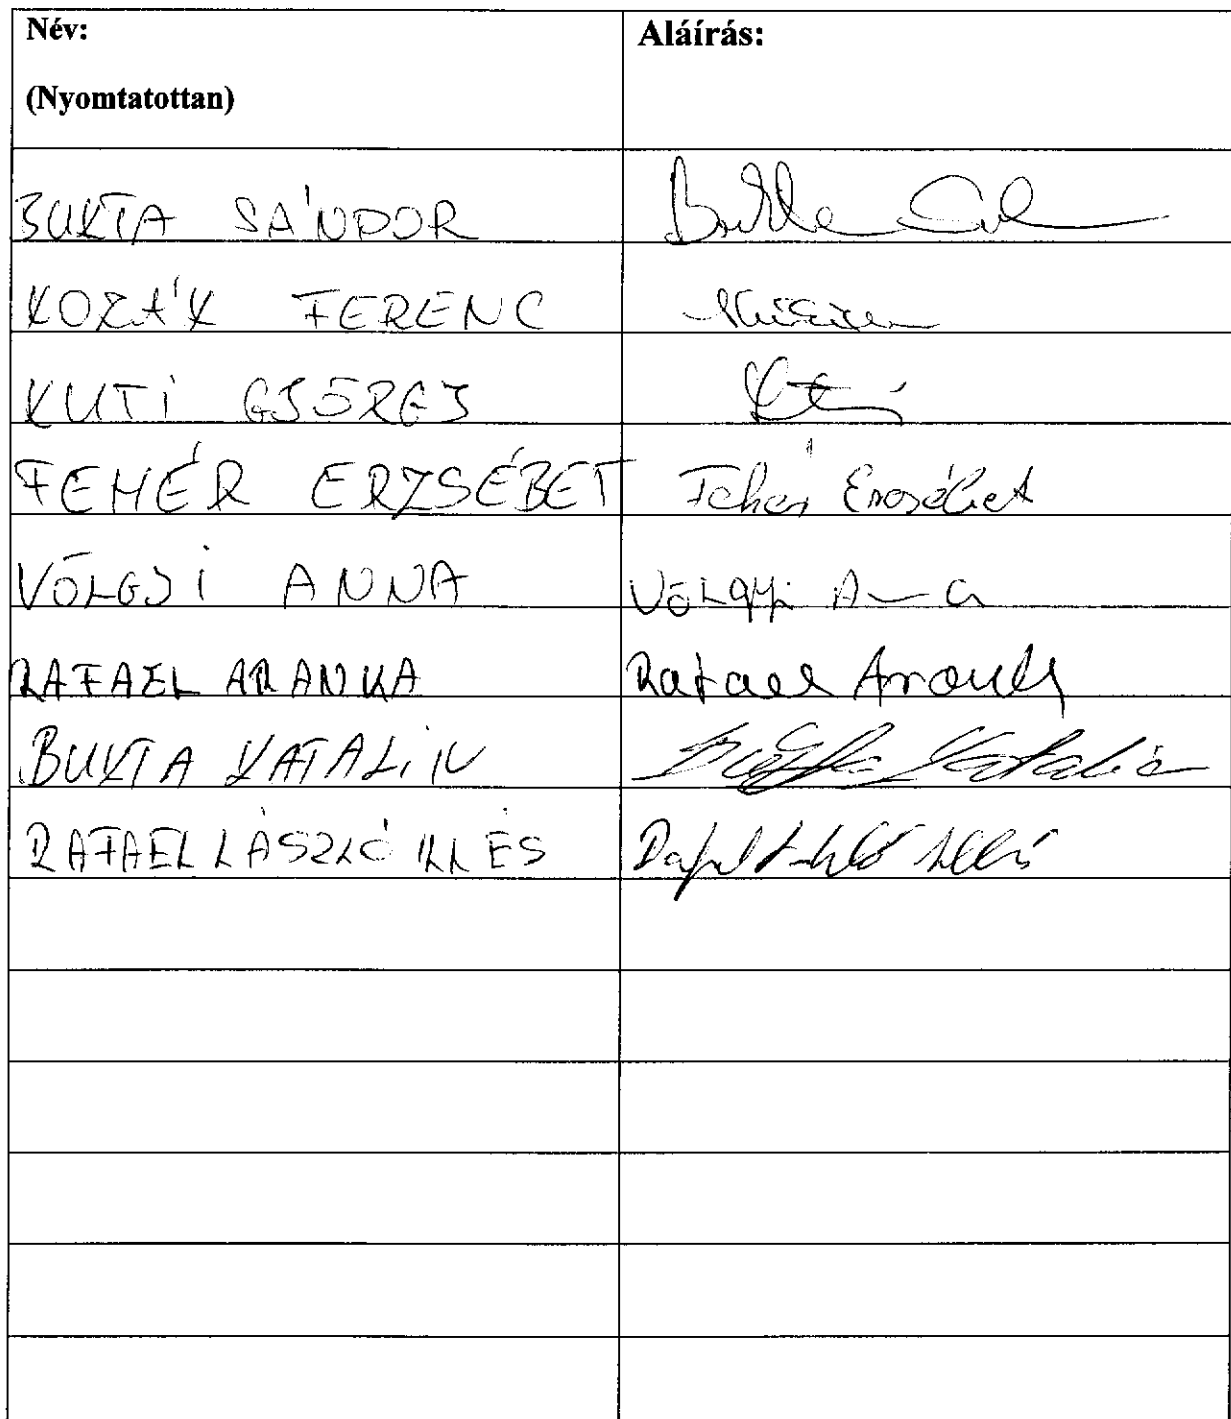 Név:
Aláírás:
(Nyomtatottan)
BUKTA SÁNDOR
KOZÁK FERENC
KUTI GYÖRGY
FEHÉR ERZSÉBET Fehér Erzsébet
VÖLGYI ANNA Völgyi Anna
RAFAEL ARANKA Rafael Aranka
BUKTA KATALIN Bukta Katalin
RAFAEL LÁSZLÓ ILLÉS Rafael László Illés